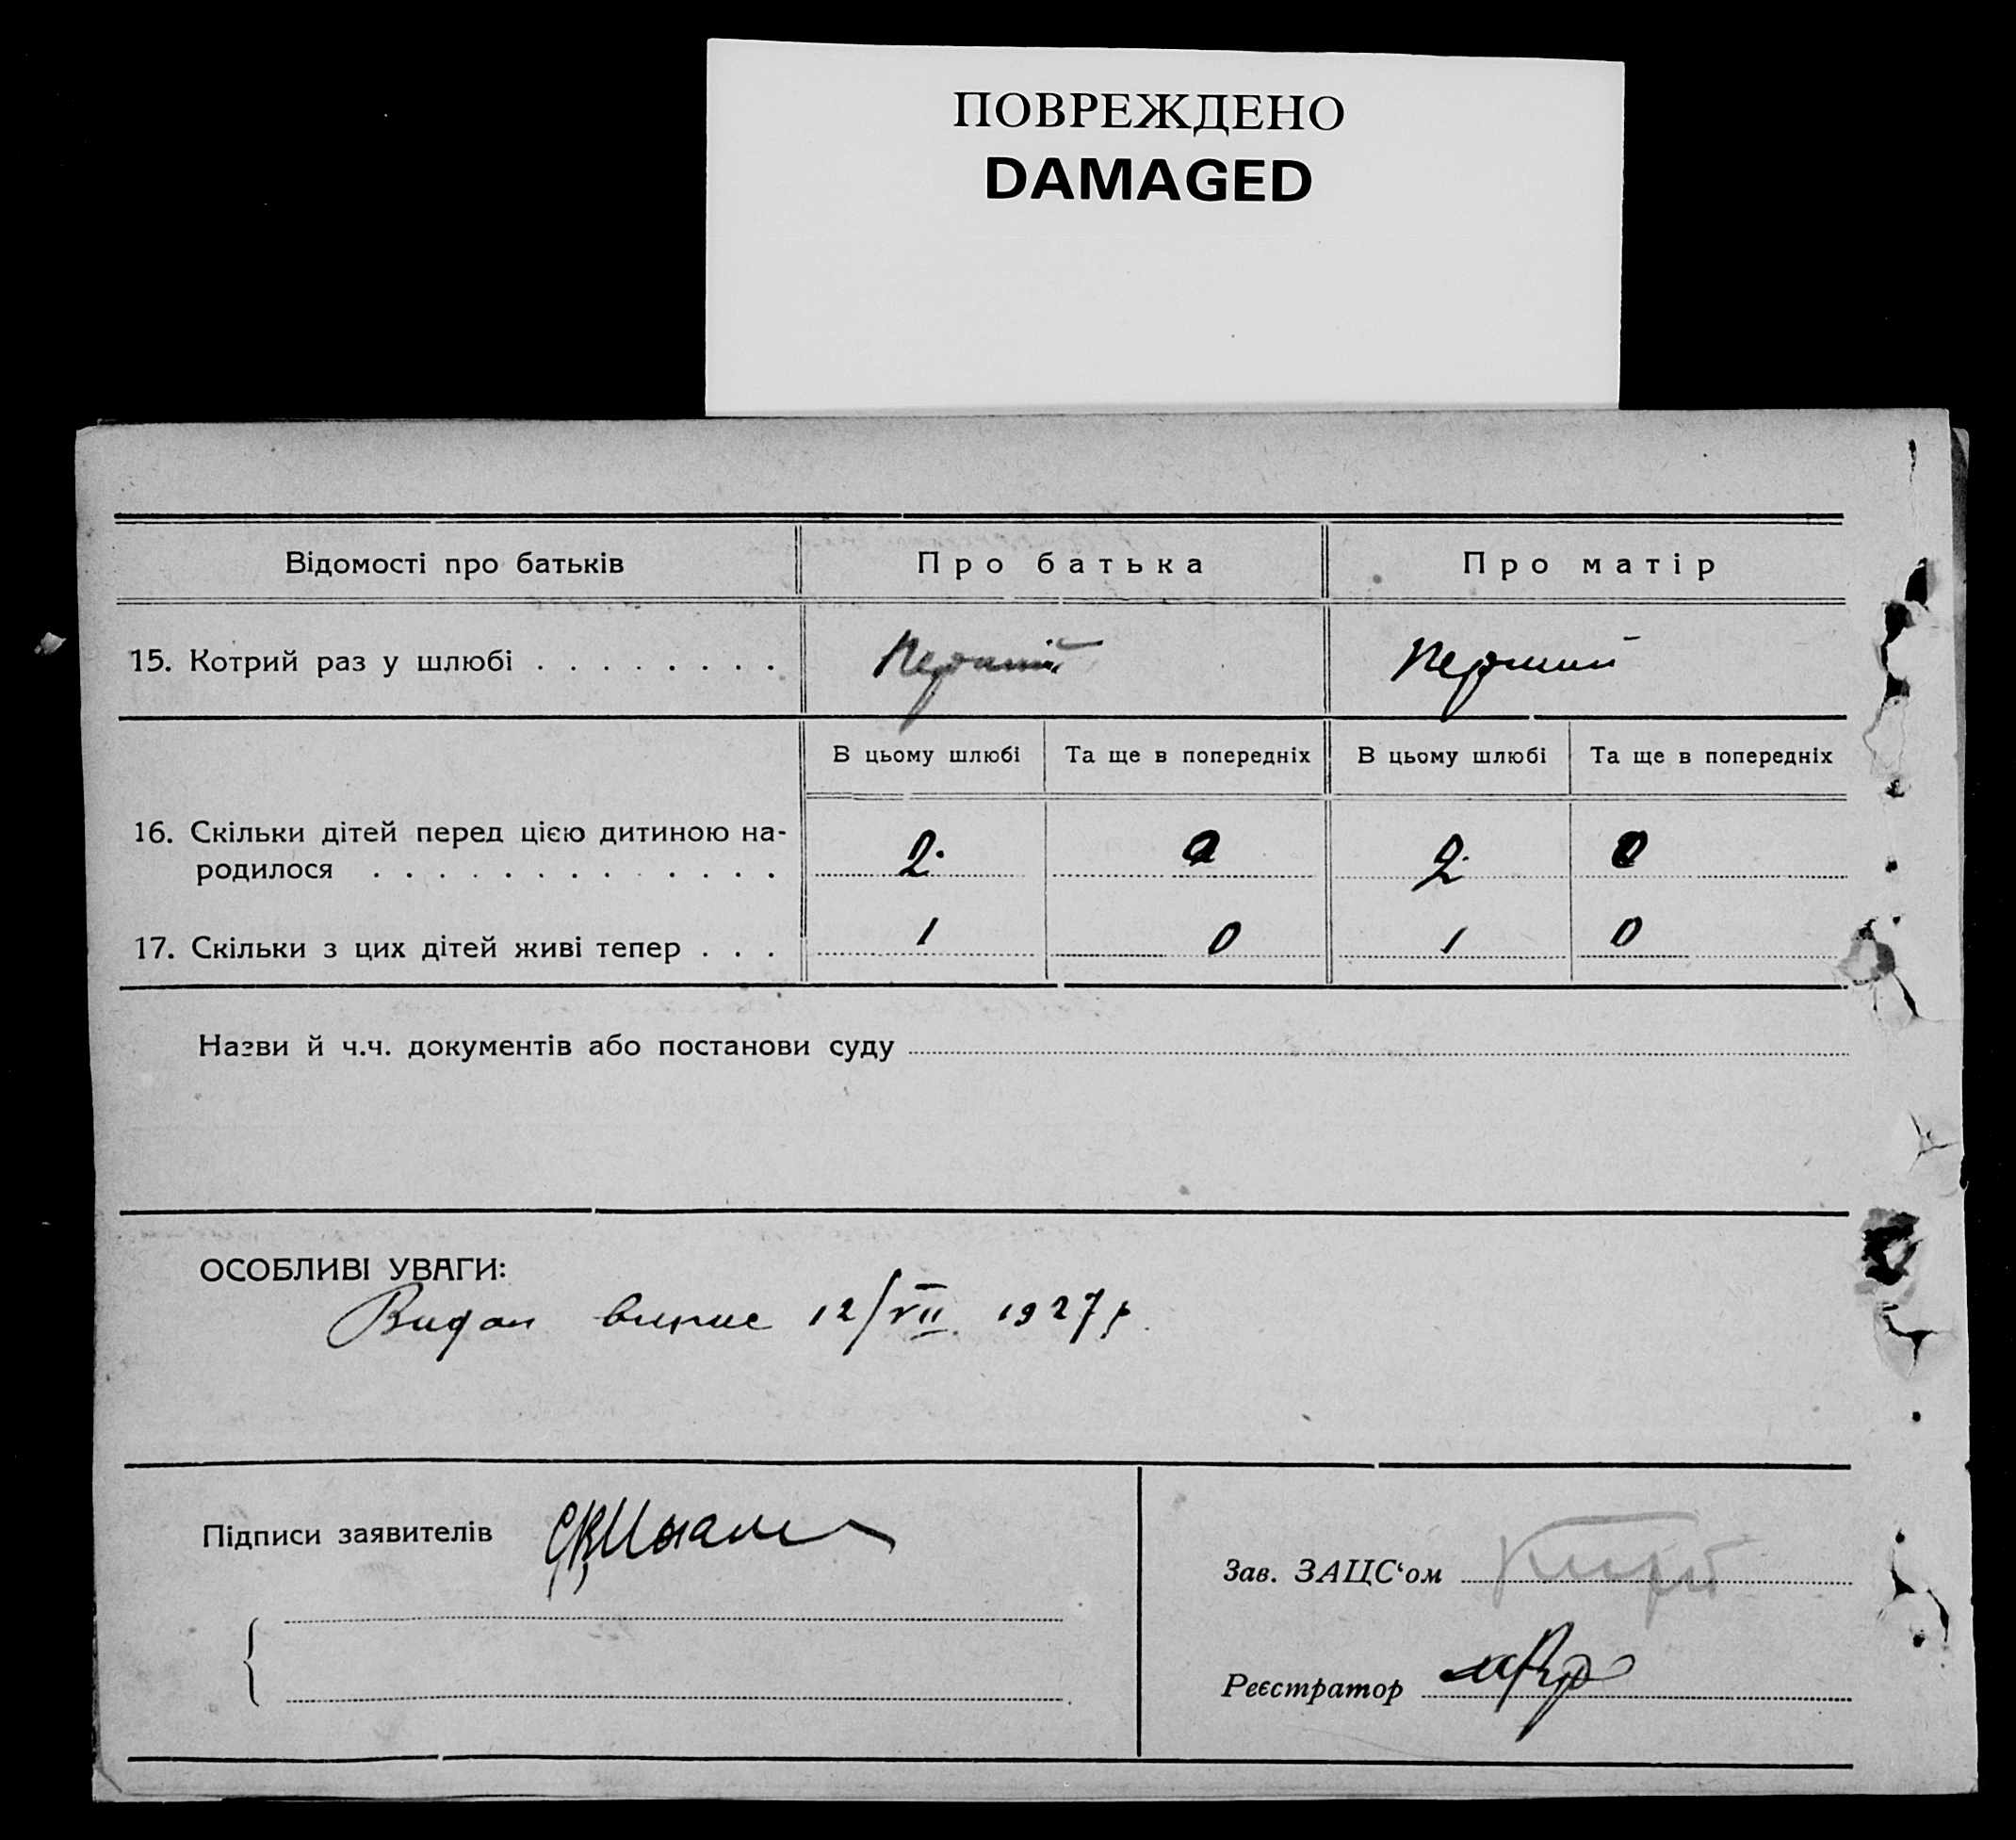 ПОВРЕЖДЕНО
DAMAGED
Відомості про батьків
Про батька
Про матір
15. Котрий раз у шлюбі . . . . . . . .
Перший
Перший
В цьому шлюбі
Та ще в попередніх
В цьому шлюбі
Та ще в попередніх
16. Скільки дітей перед цією дитиною на-
родилося . . . . . . . . . . . . .
2.
0
2.
0
17. Скільки з цих дітей живі тепер . . .
1
0
1
0
Назви й ч.ч. документів або постанови суду
ОСОБЛИВІ УВАГИ:
Видан випис 12/VII 1927 р.
Підписи заявителів
Зав. ЗАЦС‘ом
Реєстратор